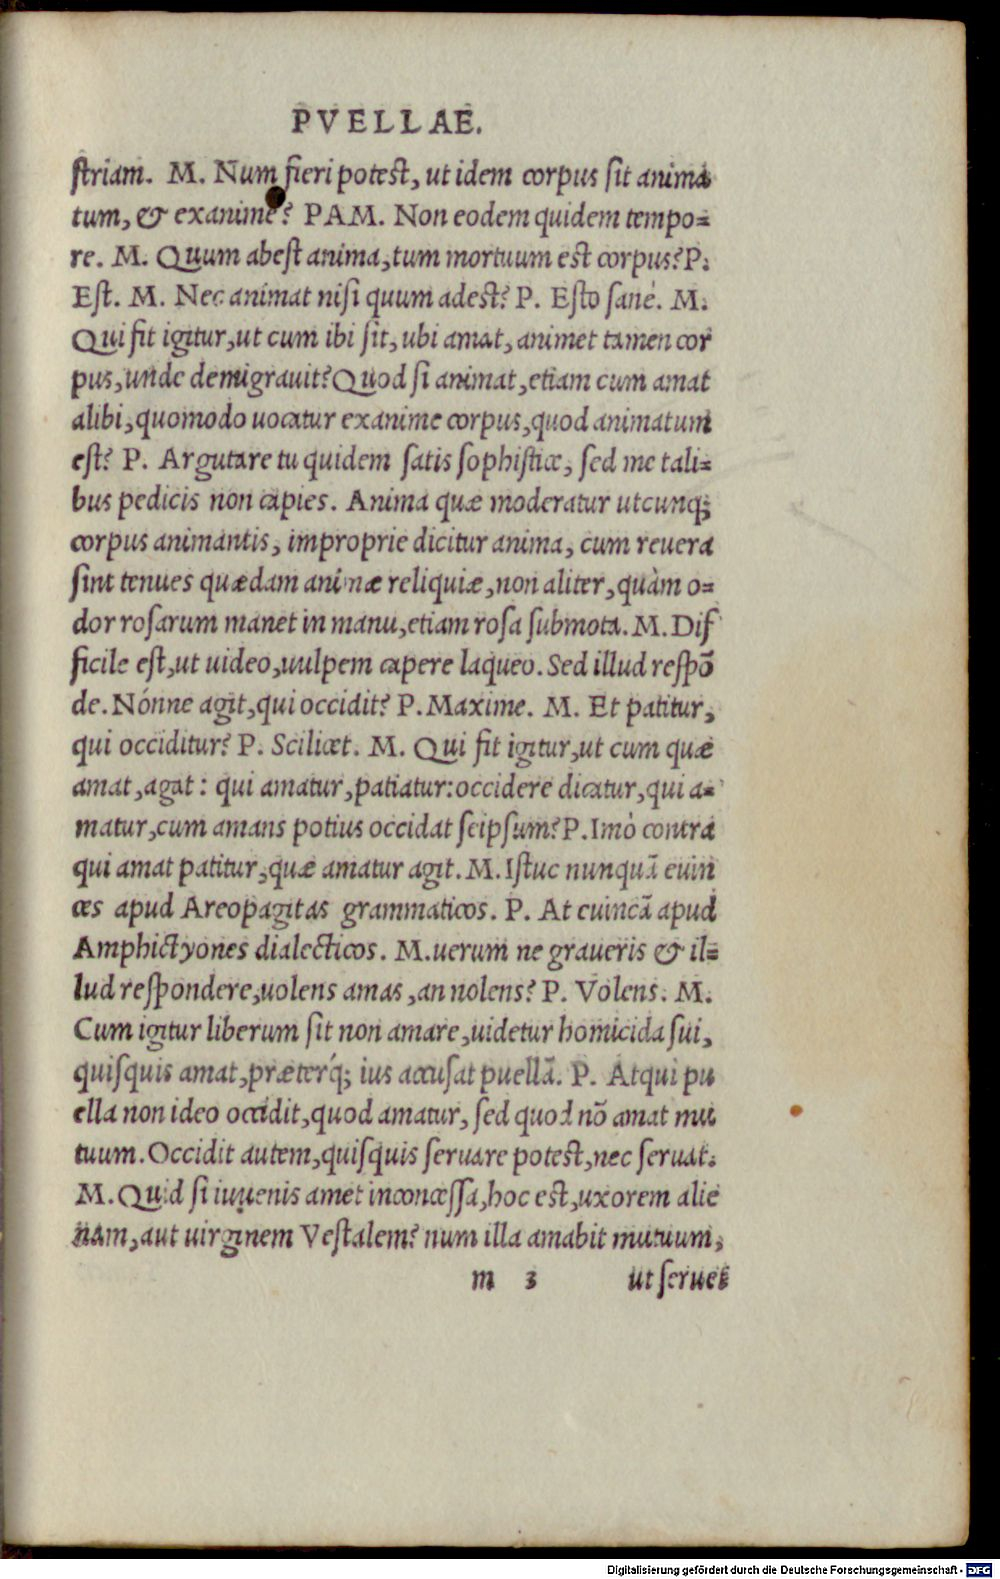 PVELLAE.
striam. M. Num fieri potest, ut idem corpus sit anima
tum, & exanime? PAM. Non eodem quidem tempo=
re. M. Quum abest anima, tum mortuum est corpus? P.
Est. M. Nec animat nisi quum adest? P. Esto sané. M.
Qui fit igitur, ut cum ibi sit, ubi amat, animet tamen cor
pus, unde demigrauit? Quod si animat, etiam cum amat
alibi, quomodo uocatur exanime corpus, quod animatum
est? P. Argutare tu quidem satis sophisticæ, sed me tali=
bus pedicis non capies. Anima quæ moderatur utcunq;
corpus animantis, improprie dicitur anima, cum reuera
sint tenues quædam animæ reliquiæ, non aliter, quàm o=
dor rosarum manet in manu, etiam rosa submota. M. Dif
ficile est, ut uideo, uulpem capere laqueo. Sed illud respõ
de. Nónne agit, qui occidit? P. Maxime. M. Et patitur,
qui occiditur? P. Scilicet. M. Qui fit igitur, ut cum quæ
amat, agat: qui amatur, patiatur: occidere dicatur, qui a=
matur, cum amans potius occidat seipsum? P. Imò contra
qui amat patitur, quæ amatur agit. M. Istuc nunquã euin
ces apud Areopagitas grammaticos. P. At euincã apud
Amphictyones dialecticos. M. uerum ne graueris & il=
lud respondere, uolens amas, an nolens? P. Volens. M.
Cum igitur liberum sit non amare, uidetur homicida sui,
quisquis amat, præterq́; ius accusat puellã. P. Atqui pu
ella non ideo occidit, quod amatur, sed quod nõ amat mu
tuum. Occidit autem, quisquis seruare potest, nec seruat.
M. Quid si iuuenis amet inconcessa, hoc est, uxorem alie
nam, aut uirginem Vestalem? num illa amabit mutuum,
m 3 ut seruet
Digitalisierung gefördert durch die Deutsche Forschungsgemeinschaft - DFG